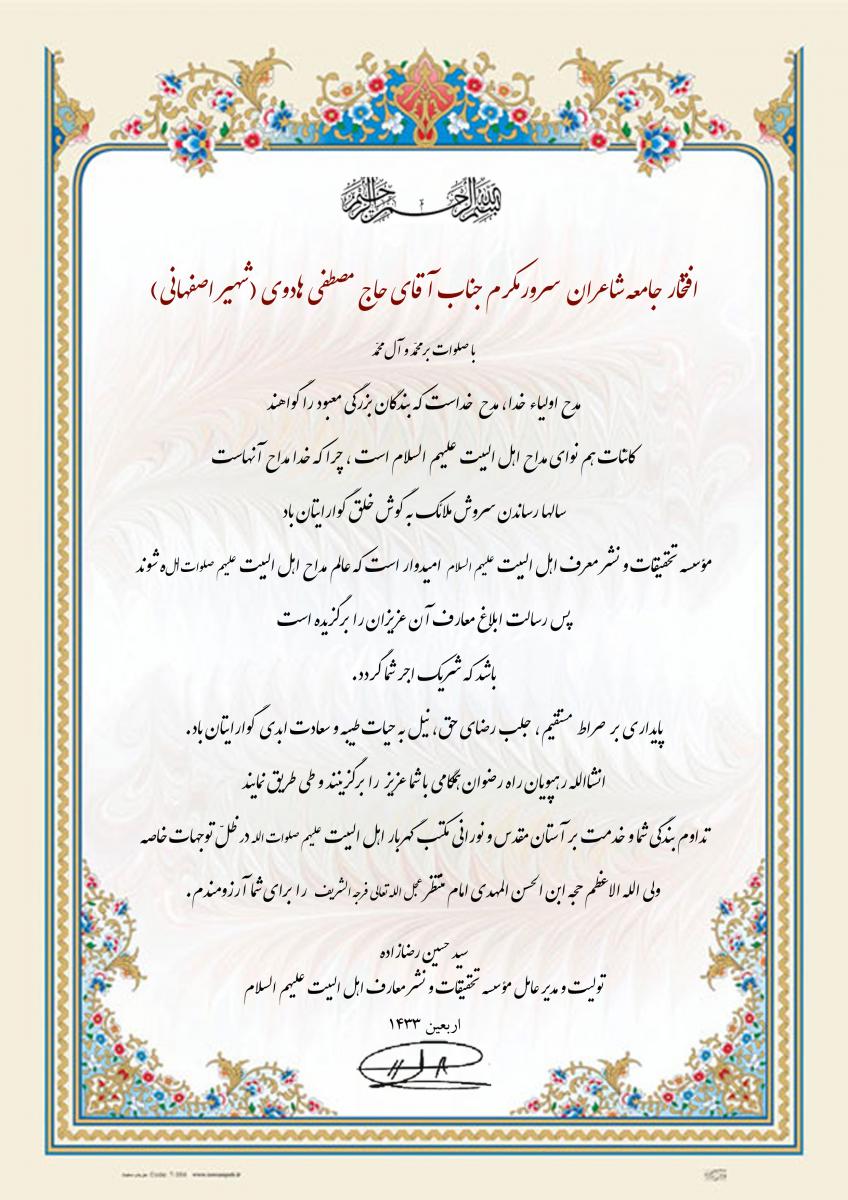 بسم الله الرحمن الرحیم
افتخار جامعه شاعران سرور مکرم جناب آقای حاج مصطفی هادوی (شهیر اصفهانی)
با صلوات بر محمّد و آل محمّد
مدح اولیاء خدا، مدح خداست که بندگان بزرگی معبود را گواهند
کائنات هم نوای مداح اهل البیت علیهم السلام است، چرا که خدا مداح آنهاست
سالها رساندن سروش ملائک به گوش خلق گوارایتان باد
مؤسسه تحقیقات و نشر معرف اهل البیت علیهم السلام امیدوار است که عالم مداح اهل البیت علیهم صلوات الله شوند
پس رسالت ابلاغ معارف آن عزیزان را برگزیده است
باشد که شریک اجر شما گردد.
پایداری بر صراط مستقیم، جلب رضای حق، نیل به حیات طیبه و سعادت ابدی گوارایتان باد.
انشاالله رهپویان راه رضوان همگامی با شما عزیز را برگزینند و طی طریق نمایند
تداوم بندگی شما و خدمت بر آستان مقدس و نورانی مکتب گهربار اهل البیت علیهم صلوات الله در ظلّ توجهات خاصه
ولی الله الاعظم حجه ابن الحسن المهدی امام منتظر عجل الله تعالی فرجه الشریف را برای شما آرزومندم.
سید حسین رضازاده
تولیت و مدیر عامل مؤسسه تحقیقات و نشر معارف اهل البیت علیهم السلام
اربعین ۱۴۳۳